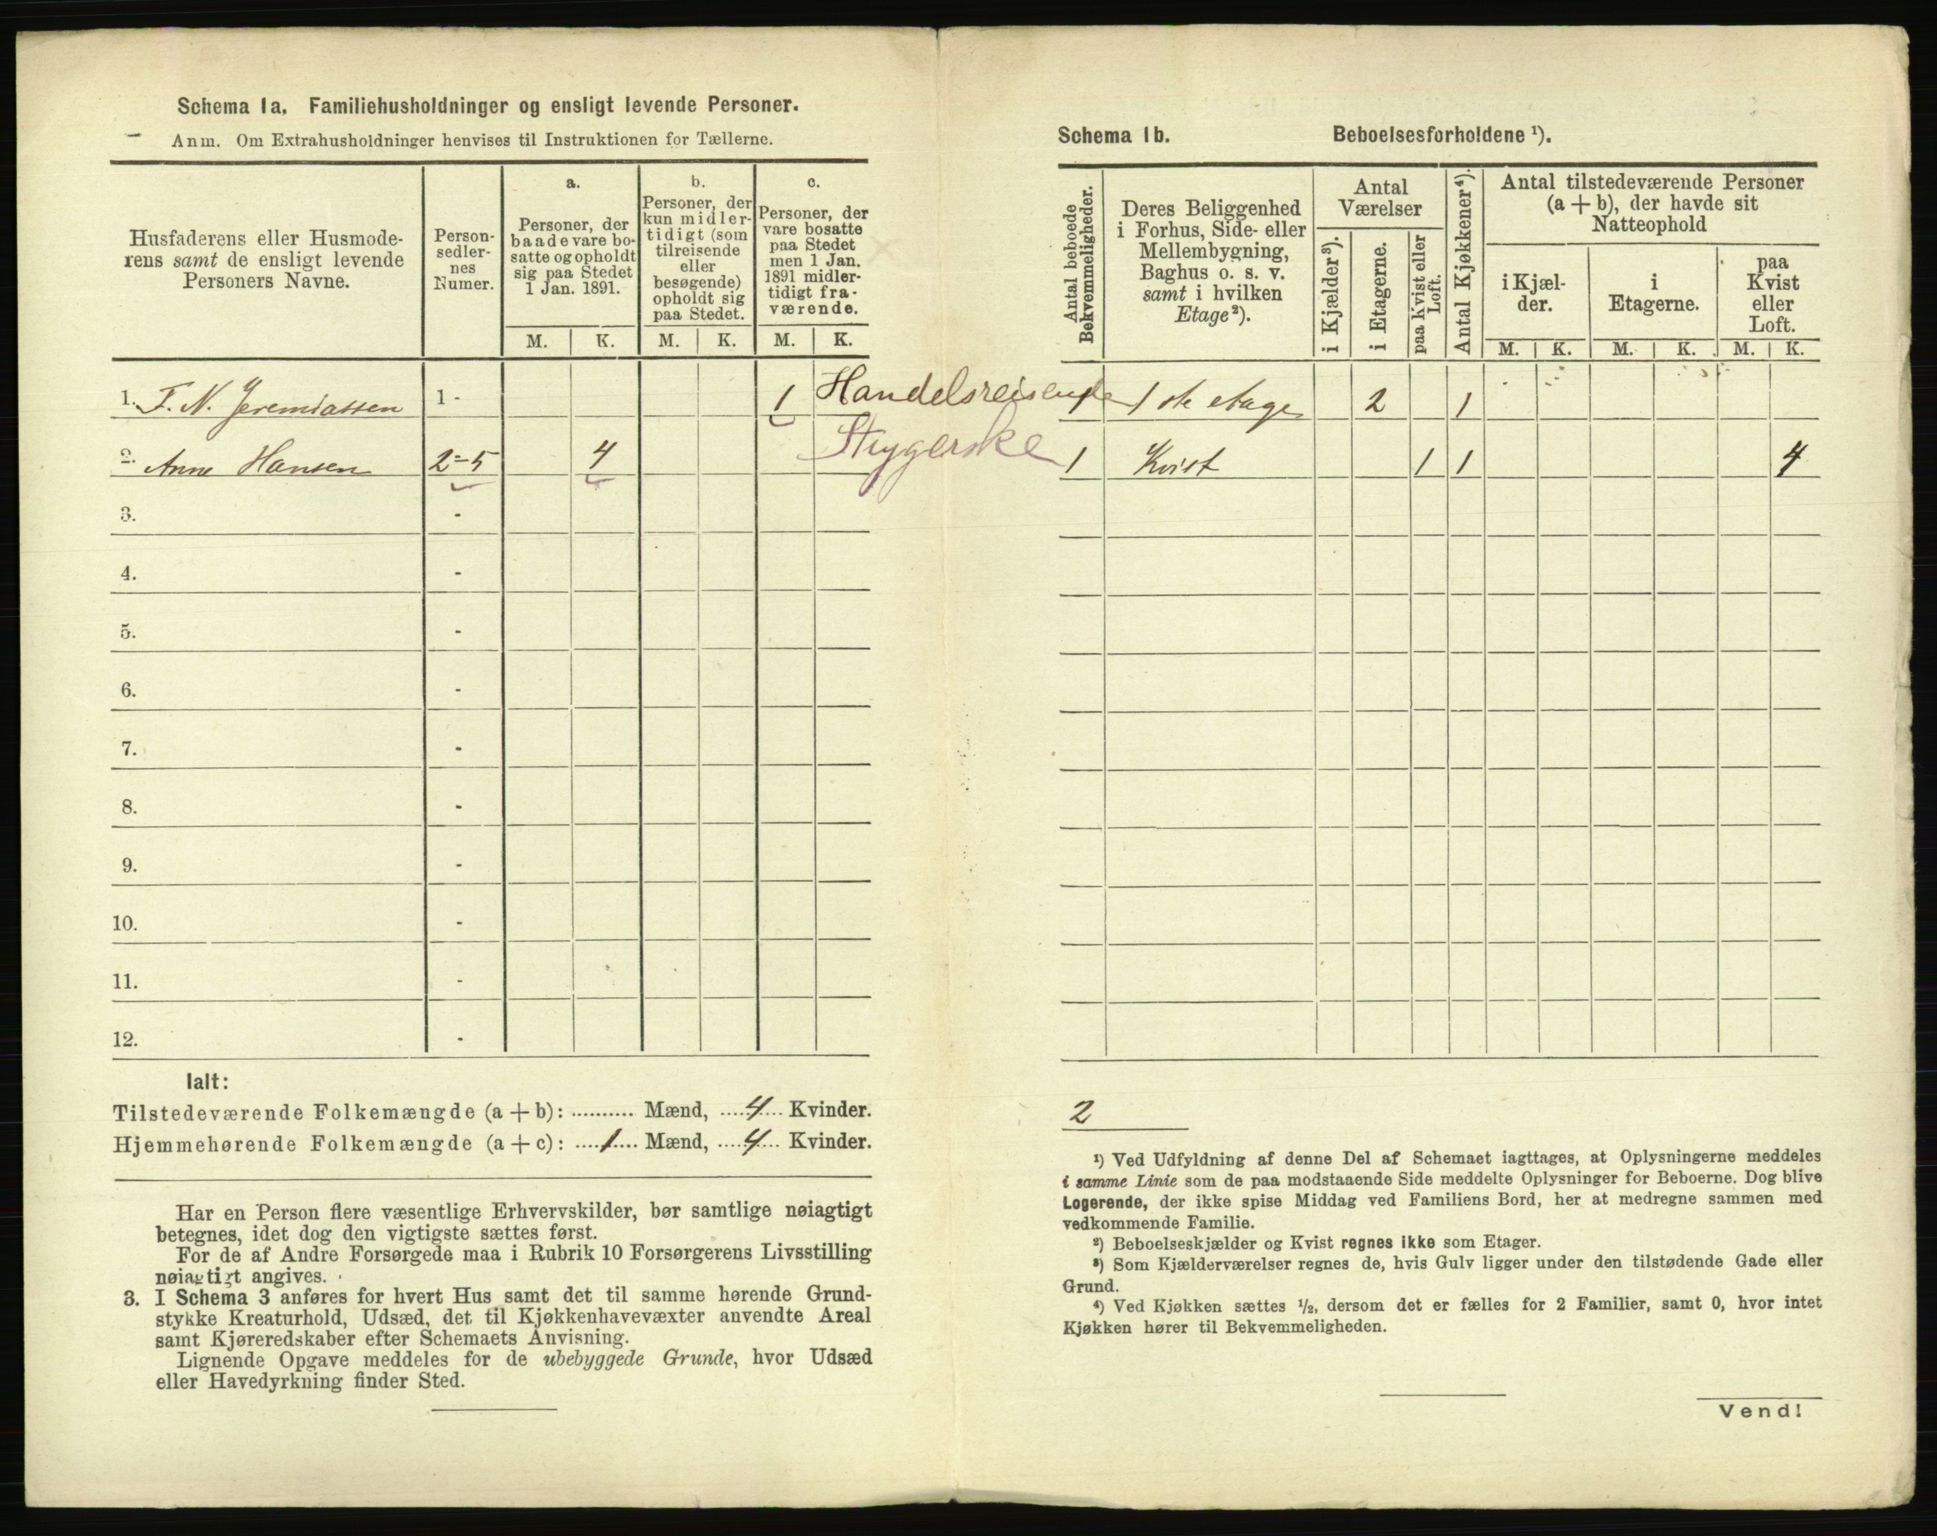 Schema 1a. Familiehusholdninger og ensligt levende Personer.
Anm. Om Extrahusholdninger henvises til Instruktionen for Tællerne.
Husfaderens eller Husmoderens samt de ensligt levende Personers Navne.
Personsedlernes Numer.
a.
Personer, der baade vare bosatte og opholdt sig paa Stedet 1 Jan. 1891.
b.
Personer, der kun midlertidigt (som tilreisende eller besøgende) opholdt sig paa Stedet.
c.
Personer, der vare bosatte paa Stedet men 1 Jan. 1891 midlertidigt fraværende.
M. K. M. K. M. K.
1. F. N. Jeremiassen 1 - 1 Handelsreisende
2. Anne Hansen 2-5 4 Strygerske
3. -
4. -
5. -
6. -
7. -
8. -
9. -
10. -
11. -
12. -
Ialt:
Tilstedeværende Folkemængde (a + b): .......... Mænd, .....4.... Kvinder.
Hjemmehørende Folkemængde (a + c): ....1.... Mænd, .....4.... Kvinder.
Har en Person flere væsentlige Erhvervskilder, bør samtlige nøiagtigt
betegnes, idet dog den vigtigste sættes først.
For de af Andre Forsørgede maa i Rubrik 10 Forsørgerens Livsstilling
nøiagtigt angives.
3. I Schema 3 anføres for hvert Hus samt det til samme hørende Grund-
stykke Kreaturhold, Udsæd, det til Kjøkkenhavevæxter anvendte Areal
samt Kjøreredskaber efter Schemaets Anvisning.
Lignende Opgave meddeles for de ubebyggede Grunde, hvor Udsæd
eller Havedyrkning finder Sted.
Schema 1b. Beboelsesforholdene ¹).
Antal beboede Bekvemmeligheder.
Deres Beliggenhed i Forhus, Side- eller Mellembygning, Baghus o. s. v. samt i hvilken Etage²).
Antal Værelser
i Kjælder³).
i Etagerne.
paa Kvist eller Loft.
Antal Kjøkkener⁴).
Antal tilstedeværende Personer (a + b), der havde sit Natteophold
i Kjælder.
i Etagerne.
paa Kvist eller Loft.
M. K. M. K. M. K.
1 1 ste etage 2 1
1 Kvist 1 1 4
2
¹) Ved Udfyldning af denne Del af Schemaet iagttages, at Oplysningerne meddeles
i samme Linie som de paa modstaaende Side meddelte Oplysninger for Beboerne. Dog blive
Logerende, der ikke spise Middag ved Familiens Bord, her at medregne sammen med
vedkommende Familie.
²) Beboelseskjælder og Kvist regnes ikke som Etager.
³) Som Kjælderværelser regnes de, hvis Gulv ligger under den tilstødende Gade eller
Grund.
⁴) Ved Kjøkken sættes ½, dersom det er fælles for 2 Familier, samt 0, hvor intet
Kjøkken hører til Bekvemmeligheden.
Vend!